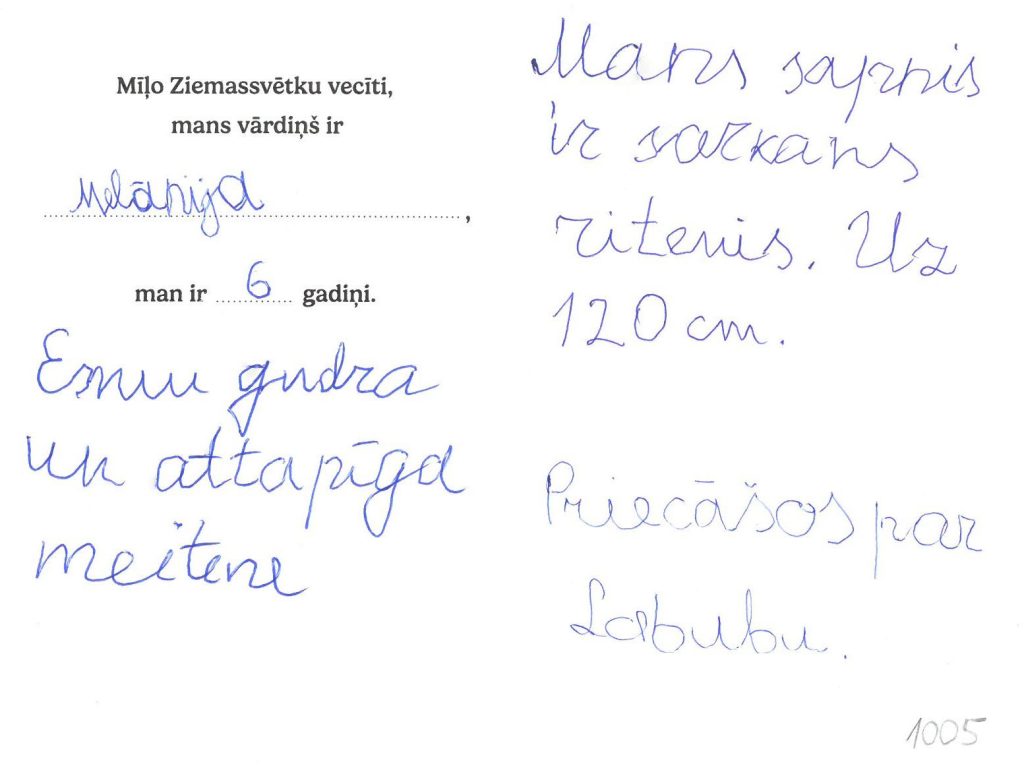 Mīļo Ziemassvētku vecīti,
mans vārdiņš ir
Melānija,
man ir 6 gadiņi.
Esmu gudra
un attapīga
meitene
Mans sapnis
ir sarkans
ritenis. Uz
120 cm.
Priecāšos par
Labubu.
1005